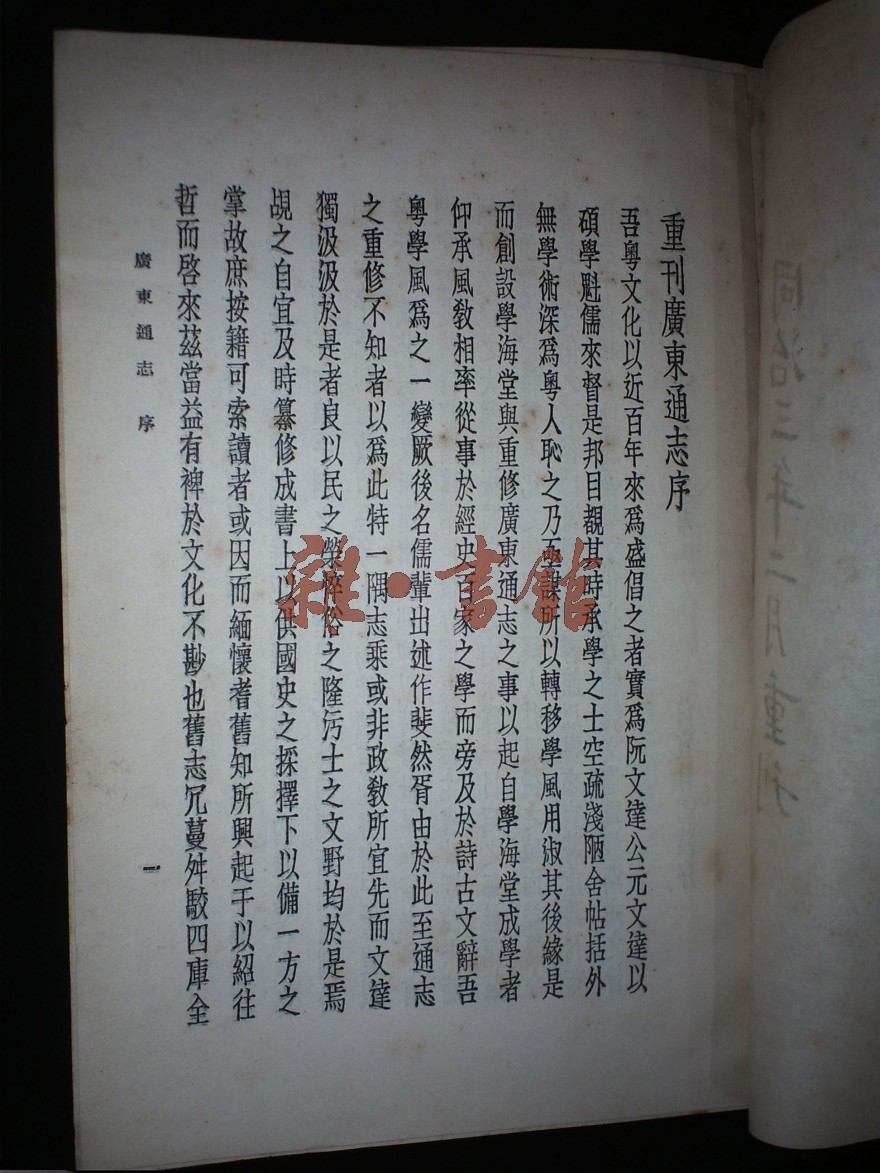 重刊廣東通志序
吾粵文化以近百年來爲盛倡之者實爲阮文達公元文達以
碩學魁儒來督是邦目覩其時承學之士空疏淺陋舍帖括外
無學術深爲粵人恥之乃亟謀所以轉移學風用淑其後緣是
而創設學海堂與重修廣東通志之事以起自學海堂成學者
仰承風教相率從事於經史百家之學而旁及於詩古文辭吾
粵學風爲之一變厥後名儒輩出述作斐然胥由於此至通志
之重修不知者以爲此特一隅志乘或非政教所宜先而文達
獨汲汲於是者良以民之榮悴俗之隆污士之文野均於是焉
覘之自宜及時纂修成書上以供國史之採擇下以備一方之
掌故庶按籍可索讀者或因而緬懷耆舊知所興起于以紹往
哲而啓來茲當益有裨於文化不尠也舊志冗蔓舛駁四庫全
廣東通志 序
一
同治三年二月重刊
雜·書館